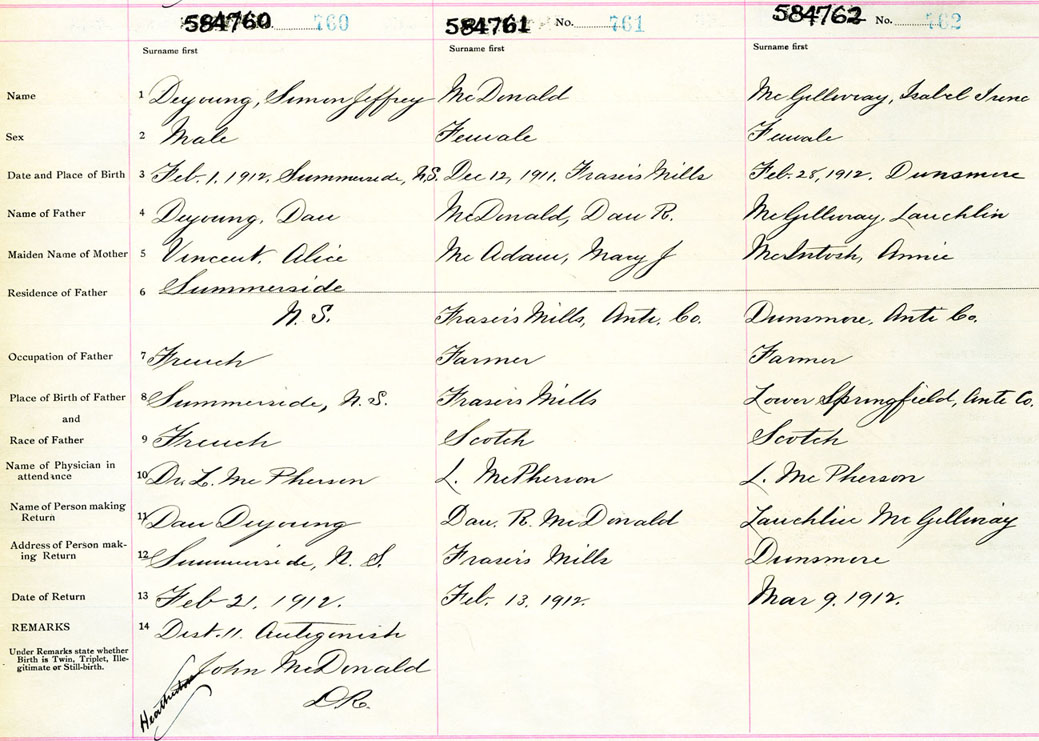 584760 760 584761 No. 761 584762 No. 762
Surname first Surname first Surname first
Name 1 Deyoung, Simon Jeffrey McDonald McGillivray, Isabel Irene
Sex 2 Male Female Female
Date and Place of Birth 3 Feb. 1. 1912, Summerside, N.S. Dec 12, 1911. Frasers Mills Feb. 28, 1912. Dunsmore
Name of Father 4 Deyoung, Dan McDonald, Dan R. McGillivray, Lauchlin
Maiden Name of Mother 5 Vincent, Alice McAdam, Mary J McIntosh, Annie
Residence of Father 6 Summerside
N. S. Frasers Mills, Anti. Co. Dunsmore, Anti Co.
Occupation of Father 7 French Farmer Farmer
Place of Birth of Father 8 Summerside, N. S. Frasers Mills Lower Springfield, Anti Co.
and
Race of Father 9 French Scotch Scotch
Name of Physician in
attendance 10 Dr. L. McPherson L. McPherson L. McPherson
Name of Person making
Return 11 Dan Deyoung Dan. R. McDonald Lauchlin McGillivray
Address of Person mak-
ing Return 12 Summerside, N. S. Frasers Mills Dunsmore
Date of Return 13 Feb 21. 1912. Feb. 13. 1912. Mar 9. 1912.
REMARKS 14 Dist. 11. Antigonish
Under Remarks state whether
Birth is Twin, Triplet, Ille-
gitimate or Still-birth.
John McDonald
D.R.
Heatherton